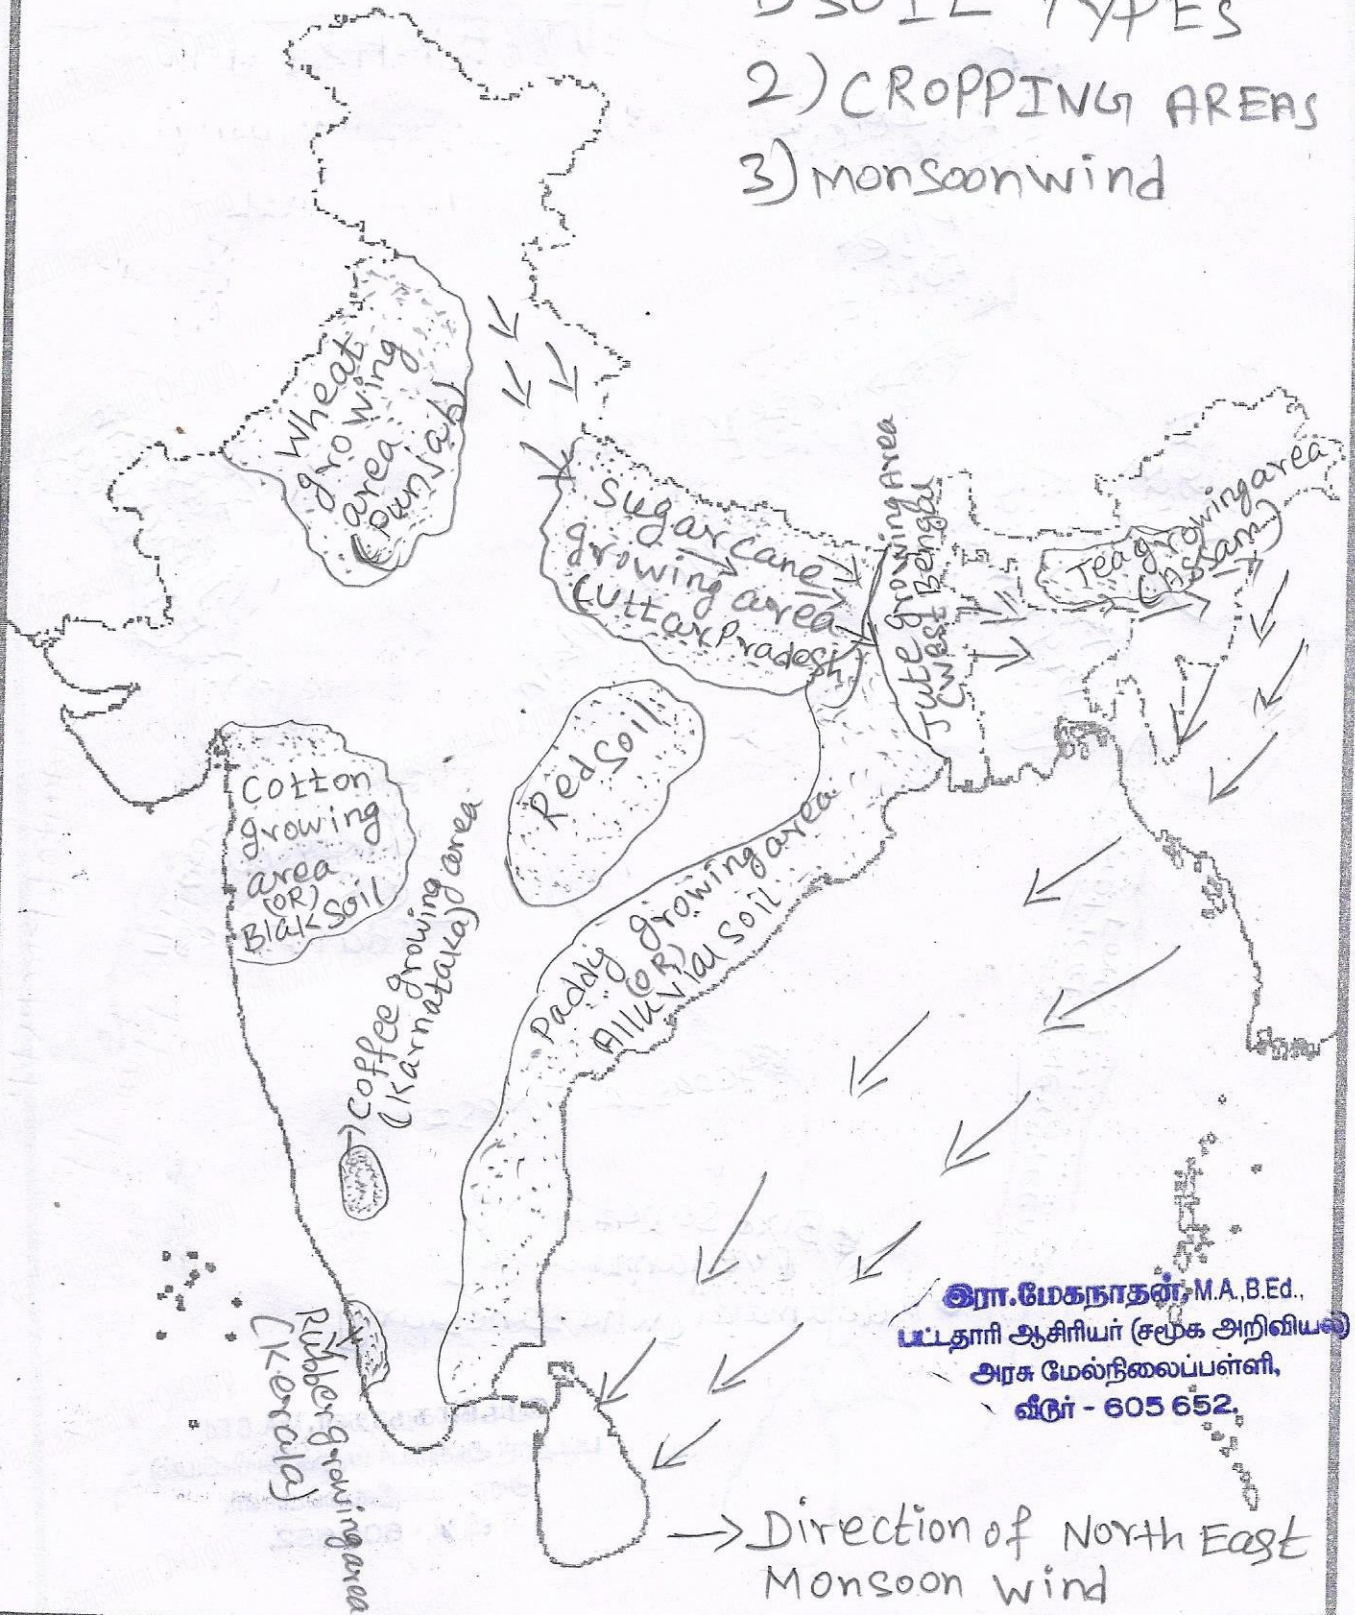 1) SOIL TYPES
2) CROPPING AREAS
3) Monsoon wind
Wheat
growing
area
(Punjab)
Sugarcane
growing area
(Uttar Pradesh)
Jute growing Area
(West Bengal
Tea growing area
(Assam)
Red Soil
Cotton
growing
area
(OR)
Blak Soil
Coffee growing area
(Karnataka)
Paddy growing area
(OR)
Alluvial Soil
Rubber growing area
(Kerala)
இரா.மேகநாதன், M.A.,B.Ed.,
பட்டதாரி ஆசிரியர் (சமூக அறிவியல்)
அரசு மேல்நிலைப்பள்ளி,
வீடூர் - 605 652.
Direction of North East
Monsoon wind